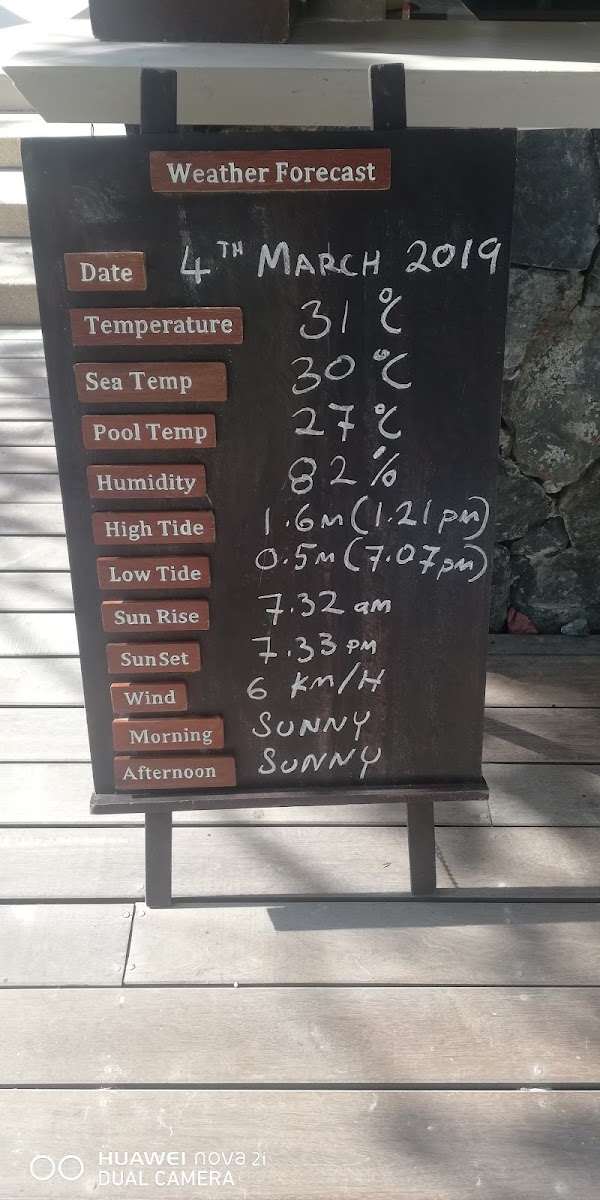 Weather Forecast
Date 4TH MARCH 2019
Temperature 31°C
Sea Temp 30°C
Pool Temp 27°C
Humidity 82%
High Tide 1.6m (1.21pm)
Low Tide 0.5m (7.07pm)
Sun Rise 7.32 am
SunSet 7.33 PM
Wind 6 KM/H
Morning SUNNY
Afternoon SUNNY
HUAWEI nova 2i
DUAL CAMERA